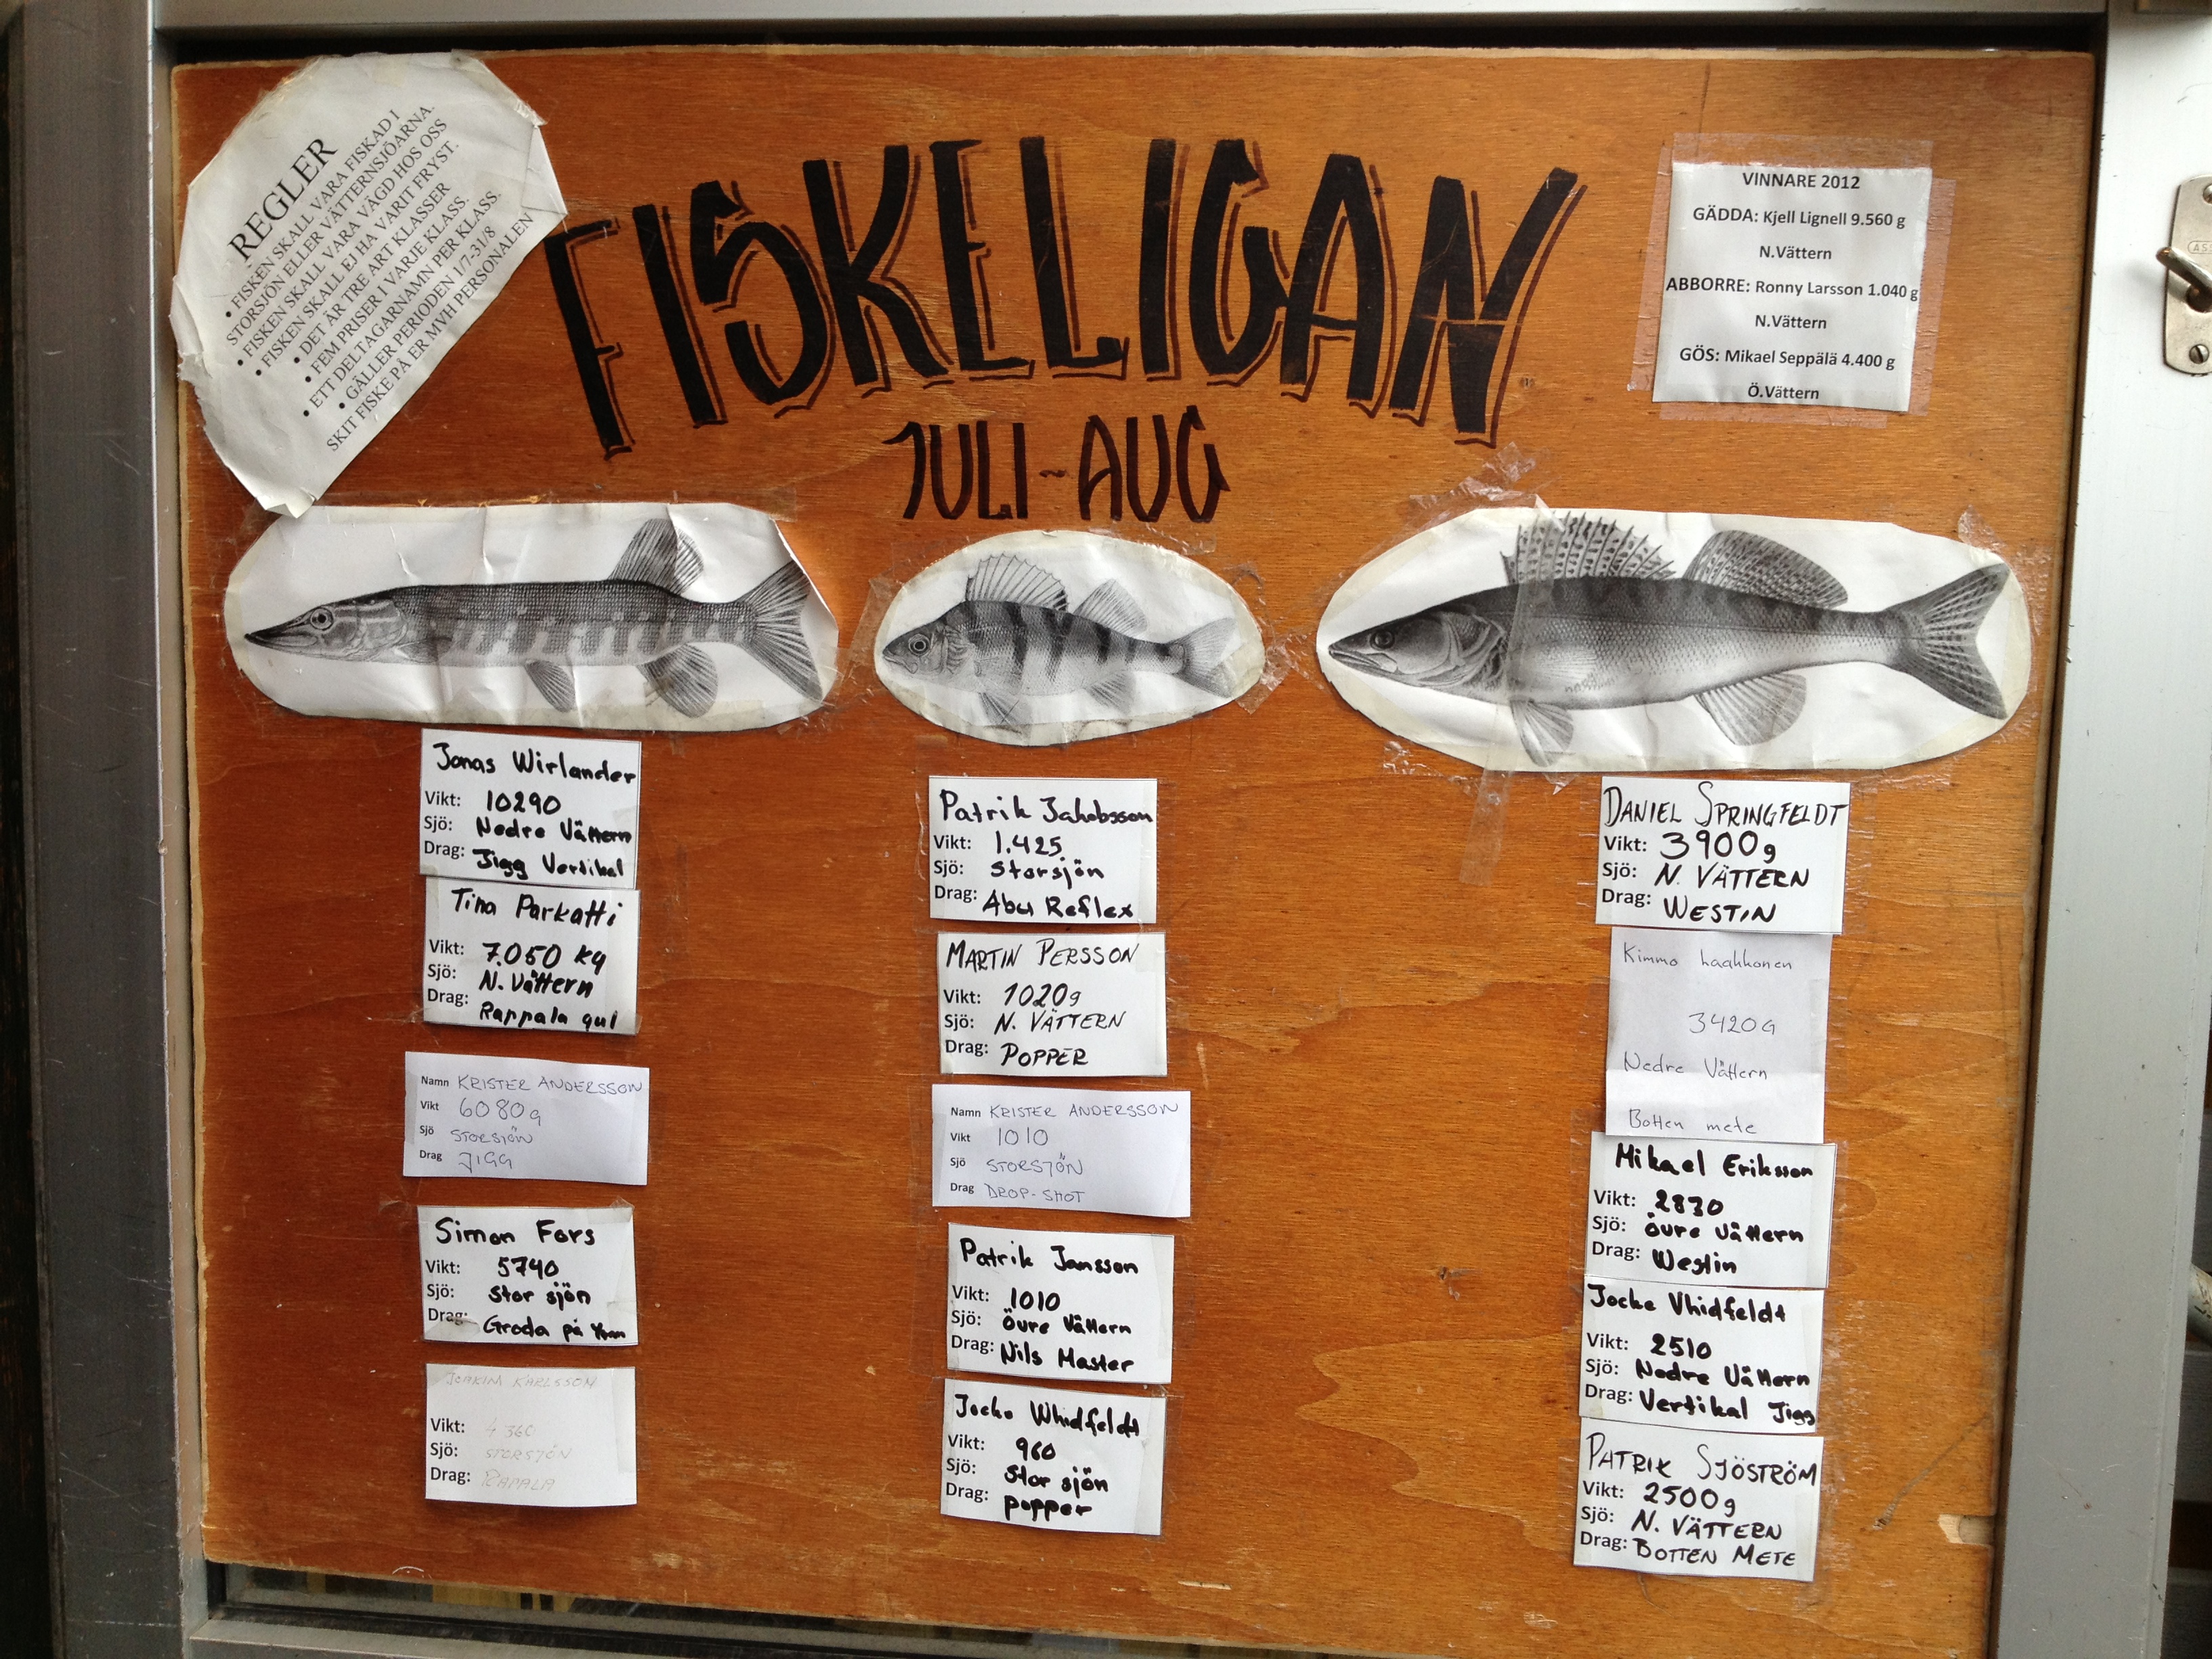 REGLER
• FISKEN SKALL VARA FISKAD I
STORSJÖN ELLER VÄTTERNSJÖARNA.
• FISKEN SKALL VARA VÄGD HOS OSS
• FISKEN SKALL EJ HA VARIT FRYST.
• DET ÄR TRE ART KLASSER
• FEM PRISER I VARJE KLASS.
• ETT DELTAGARNAMN PER KLASS.
• GÄLLER PERIODEN 1/7-31/8
SKIT FISKE PÅ ER MVH PERSONALEN
FISKELIGAN
JULI-AUG
VINNARE 2012
GÄDDA: Kjell Lignell 9.560 g
N.Vättern
ABBORRE: Ronny Larsson 1.040 g
N.Vättern
GÖS: Mikael Seppälä 4.400 g
Ö.Vättern
Jonas Wirlander
Vikt: 10290
Sjö: Nedre Vättern
Drag: Jigg Vertikal
Tina Parkatti
Vikt: 7.050 kg
Sjö: N. Vättern
Drag: Rappala gul
Namn KRISTER ANDERSSON
Vikt 6080g
Sjö STORSJÖN
Drag JIGG
Simon Fors
Vikt: 5740
Sjö: Stor sjön
Drag: Groda på
JOAKIM KARLSSON
Vikt: 4360
Sjö: STORSJÖN
Drag: RAPALA
Patrik Jakobsson
Vikt: 1.425
Sjö: Storsjön
Drag: Abu Reflex
MARTIN PERSSON
Vikt: 1020g
Sjö: N. VÄTTERN
Drag: POPPER
Namn KRISTER ANDERSSON
Vikt 1010
Sjö STORSJÖN
Drag DROP-SHOT
Patrik Jansson
Vikt: 1010
Sjö: Övre Vättern
Drag: Nils Master
Jocke Whidfeldt
Vikt: 960
Sjö: Stor sjön
Drag: popper
DANIEL SPRINGFELDT
Vikt: 3900g
Sjö: N. VÄTTERN
Drag: WESTIN
Kimmo
3420G
Nedre Vättern
Botten mete
Mikael Eriksson
Vikt: 2830
Sjö: Övre Vättern
Drag: Westin
Jocke Vhidfeldt
Vikt: 2510
Sjö: Nedre Vättern
Drag: Vertikal Jigg
PATRIK SJÖSTRÖM
Vikt: 2500g
Sjö: N. VÄTTERN
Drag: BOTTEN METE